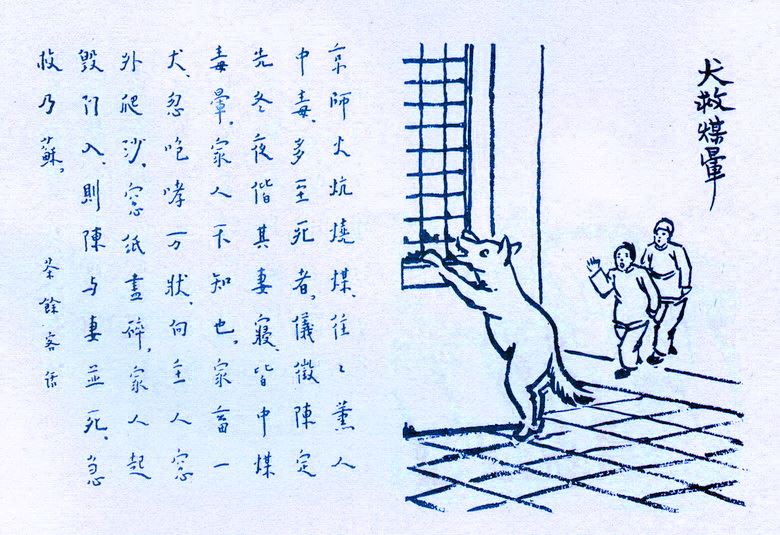 犬救煤暈
京師火炕燒煤、往〻薰人
中毒、多至死者。儀徵陳定
先冬夜偕其妻寢、皆中煤
毒暈。家人不知也。家畜一
犬、忽咆哮万狀、向主人窓
外爬沙、窓紙盡碎。家人起
毀门入、則陳与妻並死、急
救乃蘇。
茶餘客话